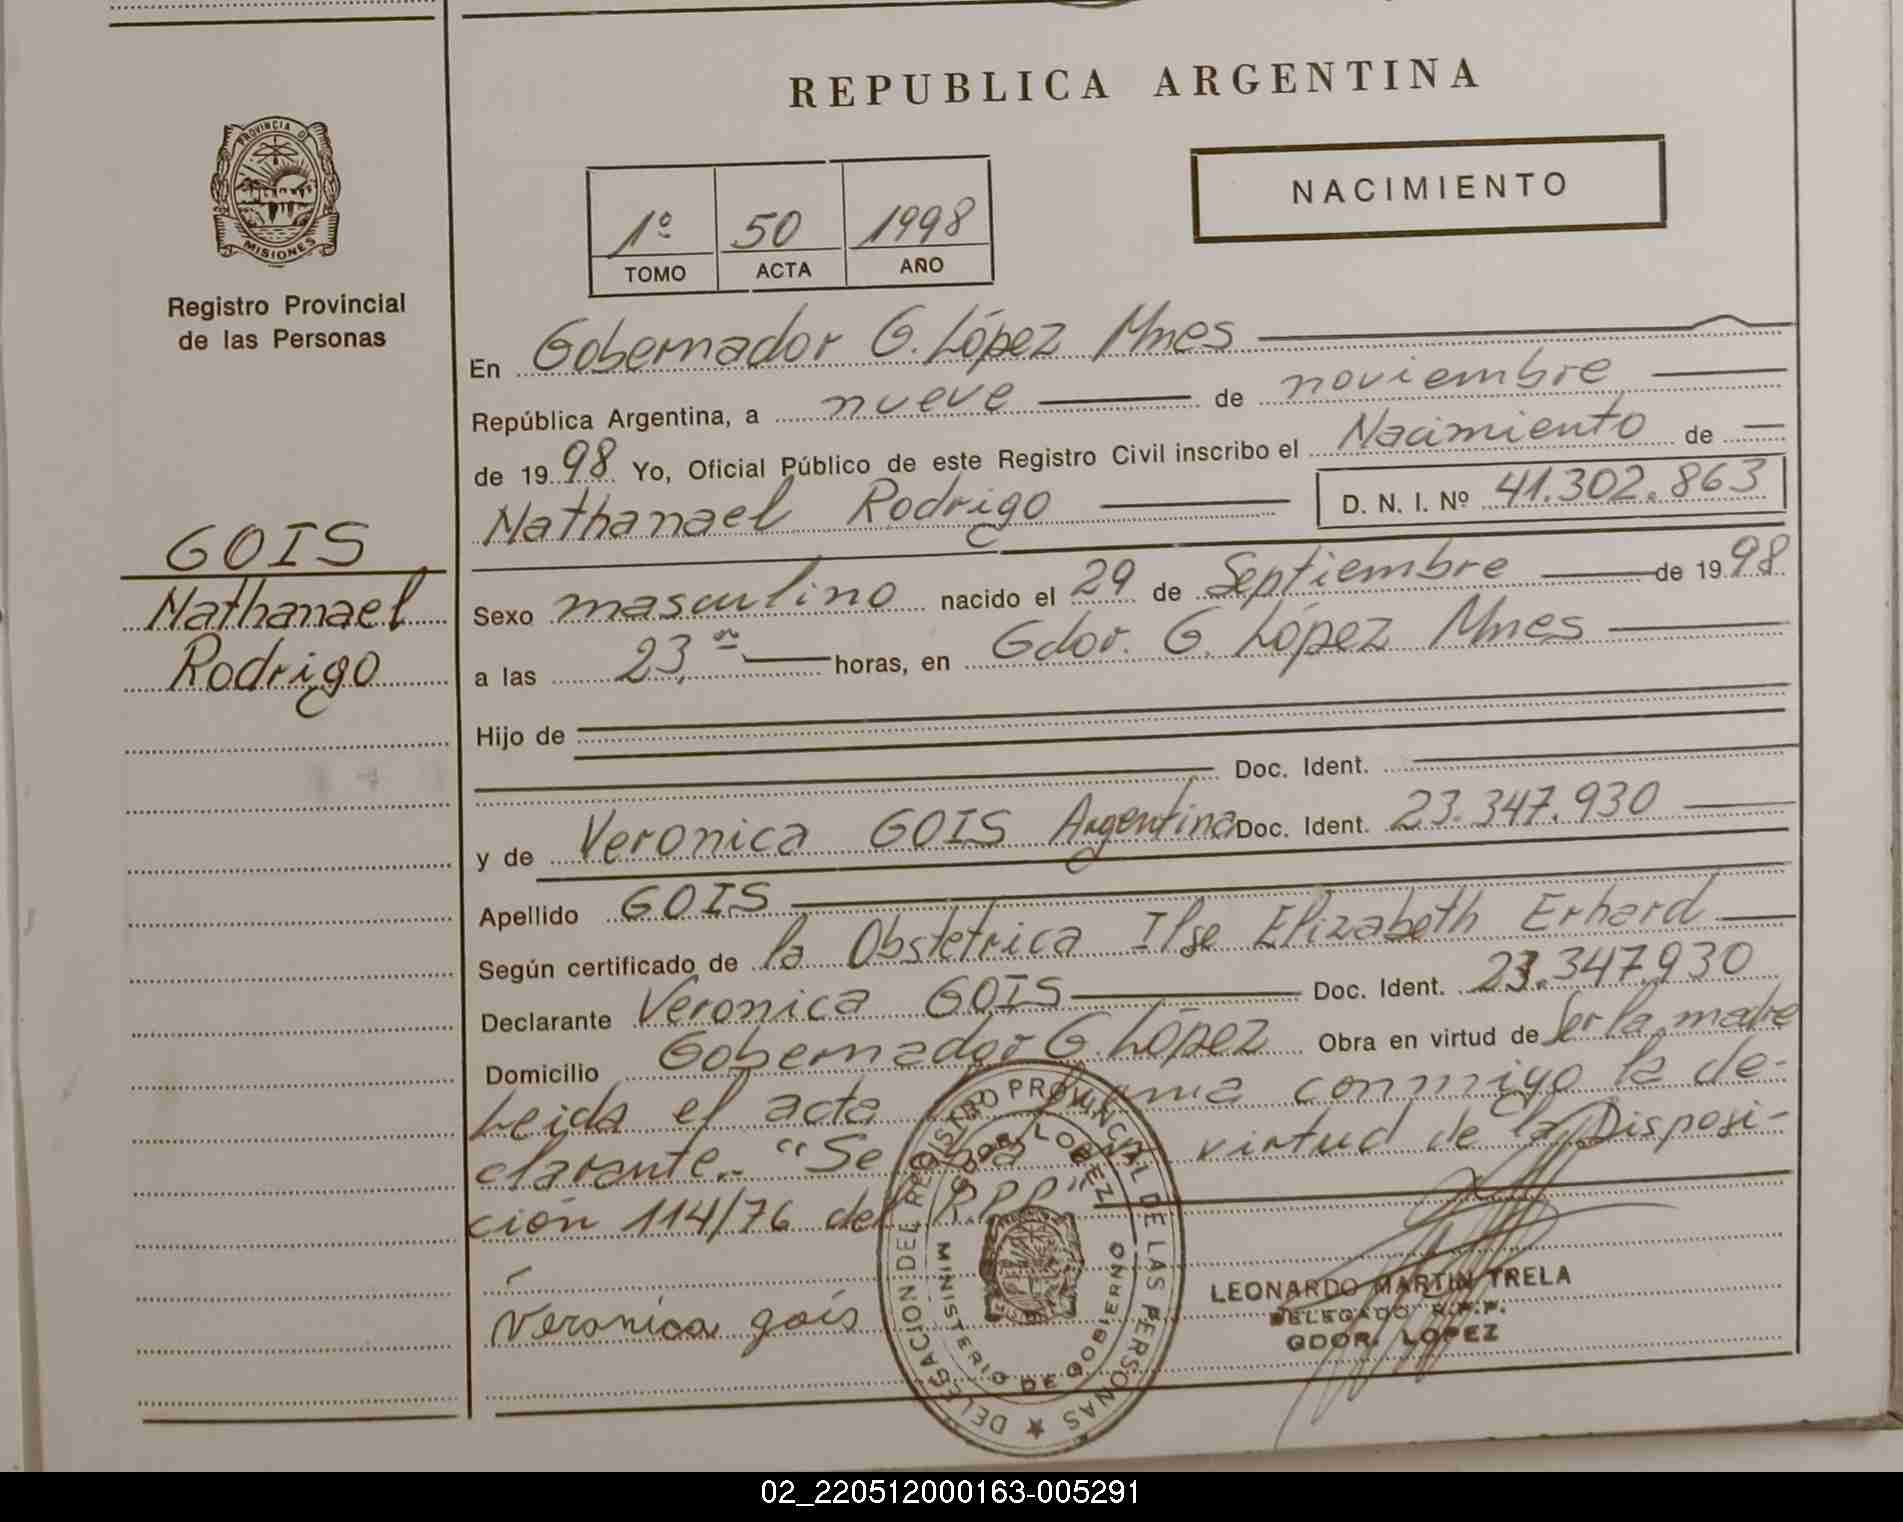 REPUBLICA ARGENTINA
NACIMIENTO
1º 50 1998
TOMO ACTA AÑO
PROVINCIA D
MISIONES
Registro Provincial
de las Personas
GOIS
Nathanael
Rodrigo
En Gobernador G. López Mnes
República Argentina, a nueve de noviembre
de 1998 Yo, Oficial Público de este Registro Civil inscribo el Nacimiento de
Nathanael Rodrigo D. N. I. Nº 41.302.863
Sexo masculino nacido el 29 de Septiembre de 1998
a las 23, horas, en Gdor. G. López Mnes
Hijo de
Doc. Ident.
y de Veronica GOIS Argentina Doc. Ident. 23.347.930
Apellido GOIS
Según certificado de la Obstetrica Ilse Elizabeth Erhard
Declarante Veronica GOIS Doc. Ident. 23.347.930
Domicilio Gobernador G. López Obra en virtud de ser la madre
Leida el acta conmigo la de-
clarante. "Se virtud de la Disposi-
ción 114/76 del R.P.P"
Veronica gois
DELEGACION DEL REGISTRO PROVINCIAL DE LAS PERSONAS
GDOR. LOPEZ
MINISTERIO DE GOBIERNO
LEONARDO MARTIN TRELA
DELEGADO R.P.P.
GDOR. LOPEZ
02_220512000163-005291